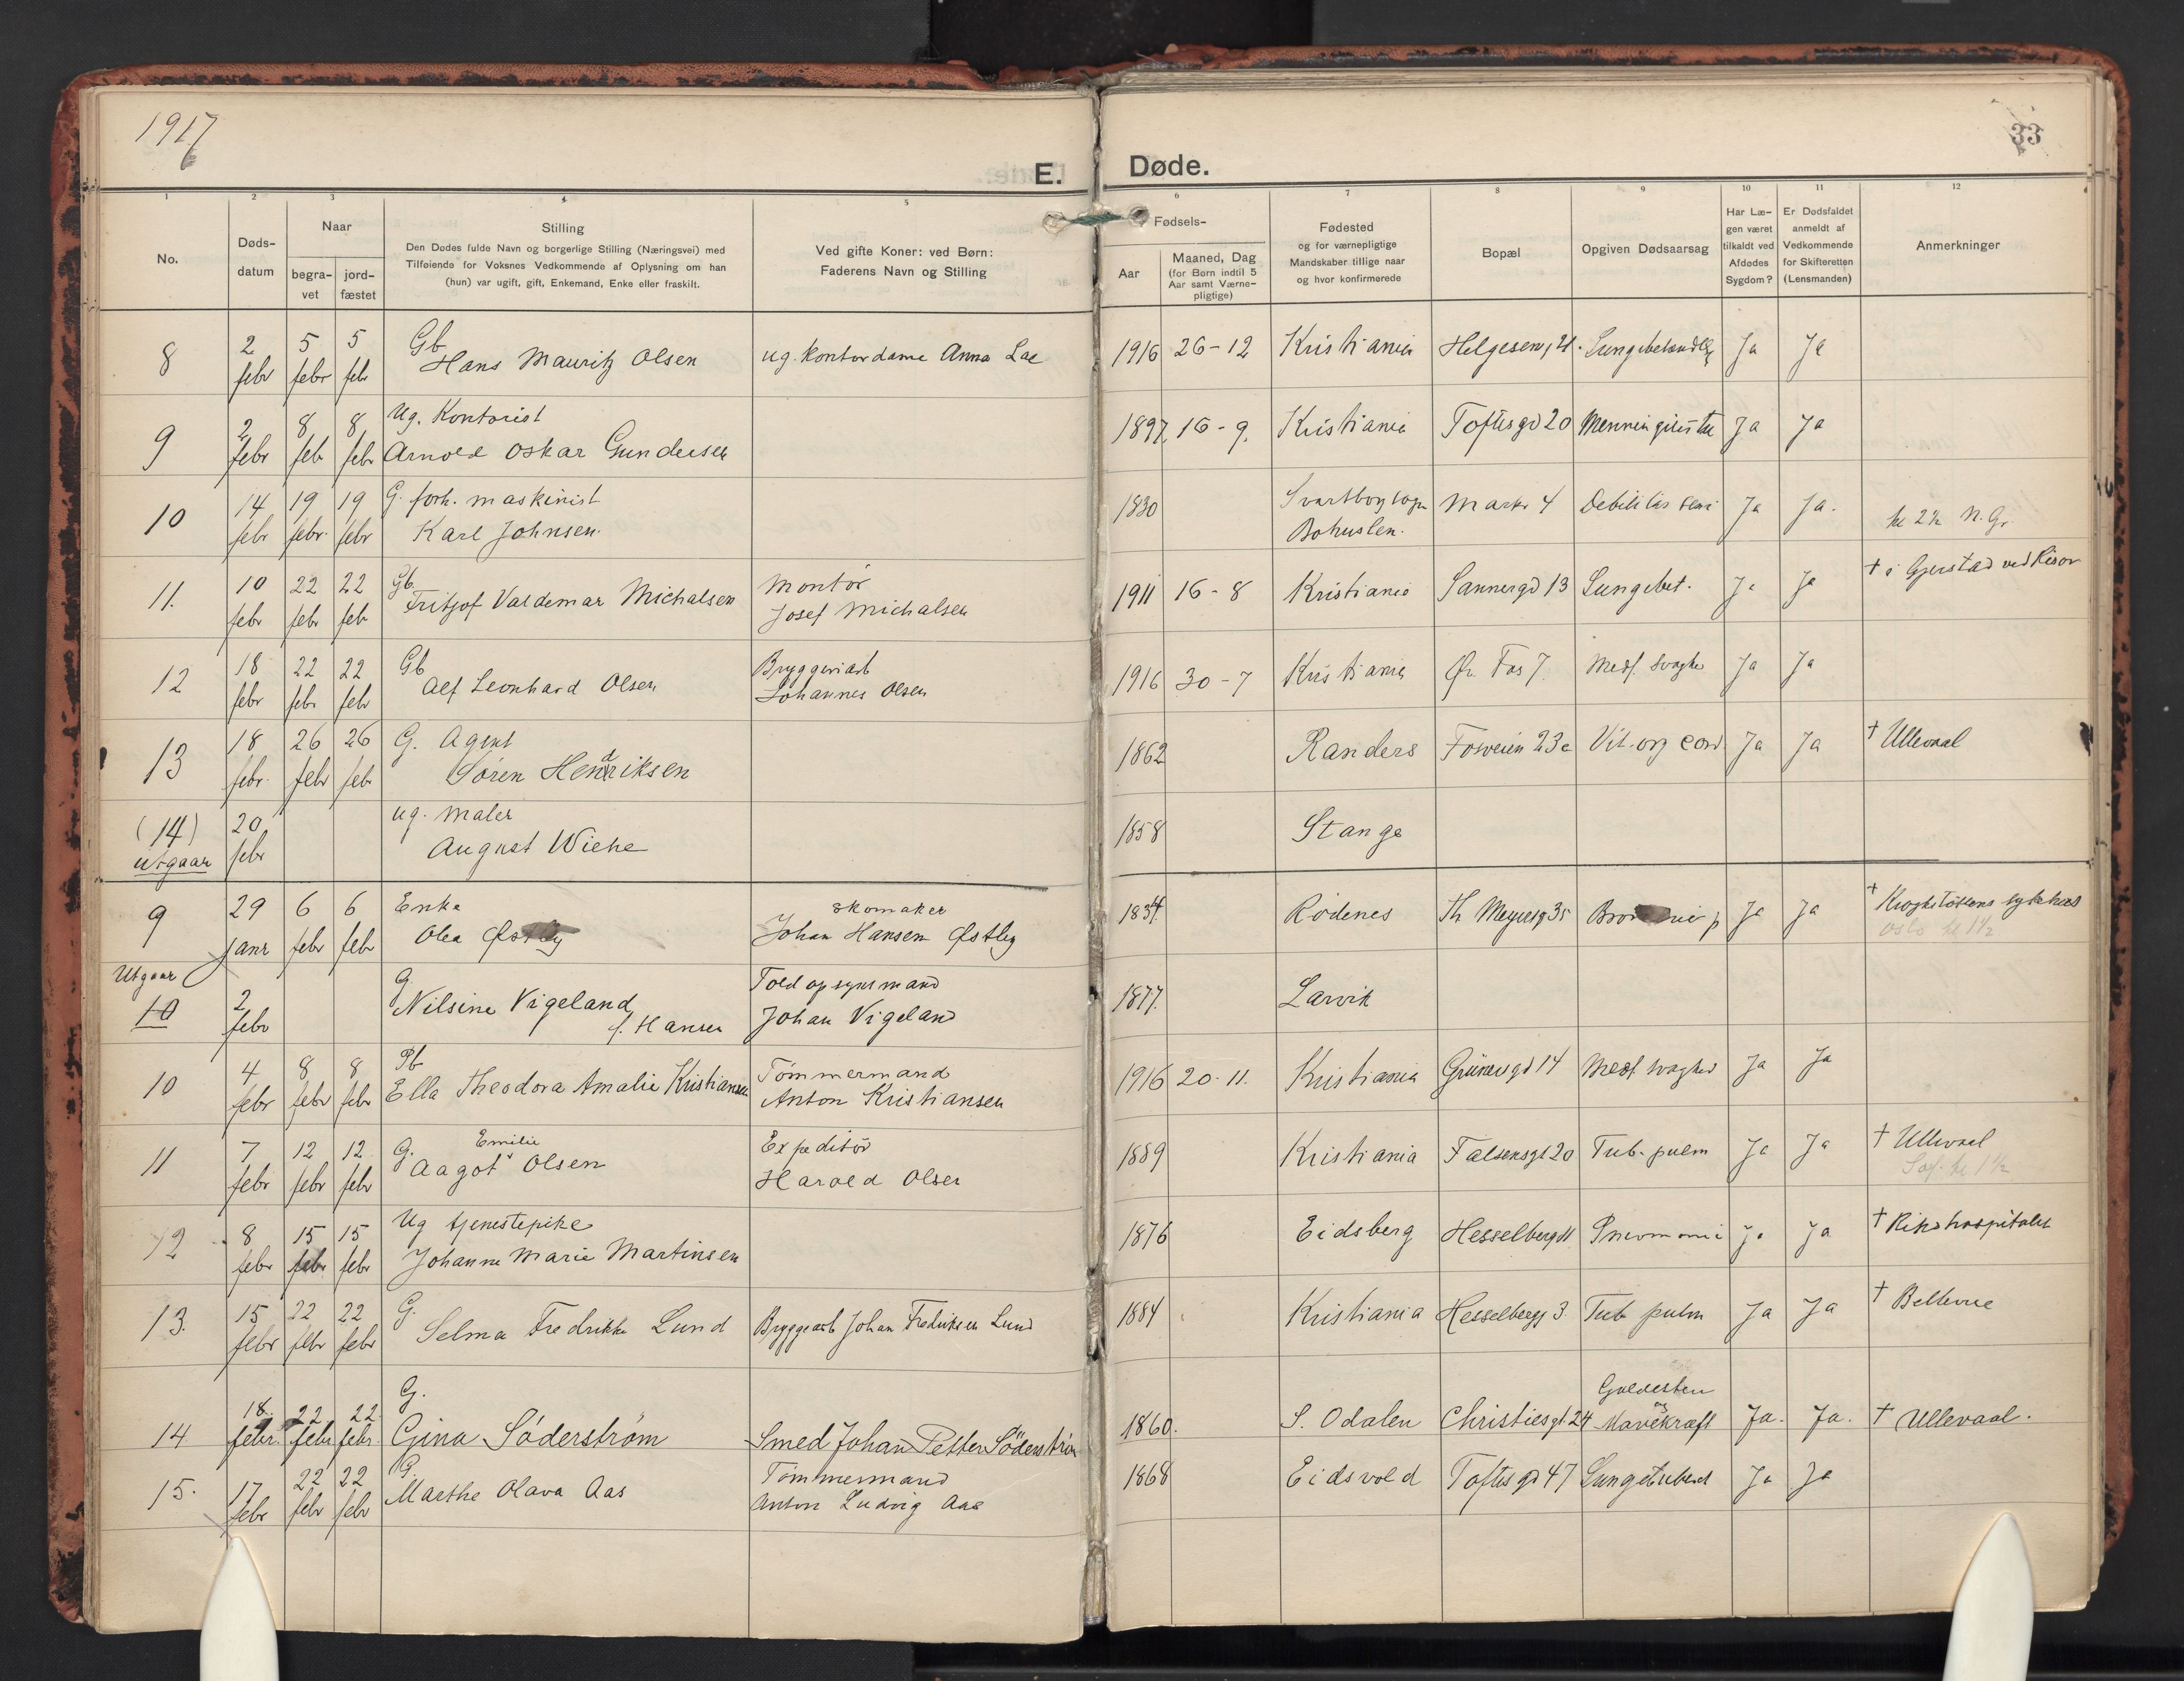 1917
33
E. Døde.
1 2 3 4 5 6 7 8 9 10 11 12
No.
Døds-
datum
Naar
begra-
vet
jord-
fæstet
Stilling
Den Dødes fulde Navn og borgerlige Stilling (Næringsvei) med
Tilføiende for Voksnes Vedkommende af Oplysning om han
(hun) var ugift, gift, Enkemand, Enke eller fraskilt.
Ved gifte Koner: ved Børn:
Faderens Navn og Stilling
Fødsels-
Aar
Maaned, Dag
(for Børn indtil 5
Aar samt Værne-
pligtige)
Fødested
og for værnepligtige
Mandskaber tillige naar
og hvor konfirmerede
Bopæl
Opgiven Dødsaarsag
Har Læ-
gen været
tilkaldt ved
Afdødes
Sygdom?
Er Dødsfaldet
anmeldt af
Vedkommende
for Skifteretten
(Lensmanden)
Anmerkninger
8 2 febr 5 febr 5 febr Gb
Hans Mauritz Olsen ug. kontordame Anna 1916 26-12 Kristiania Ja Ja
9 2 febr 8 feb 8 febr Ug. Kontorist
Arnold Oskar Gundersen 1897 16-9. Kristiania Toftesgd 20 Ja Ja
10 14 febr 19 febr. 19 febr G. forh. maskinist
Karl Johnsen. 1830 Bohuslen. Markv 4 Debilitas seni Ja Ja. N. Gr.
11. 10 febr 22 febr 22 feb Gb.
Fritjof Valdemar Michalsen Montør
Josef Michalsen 1911 16-8 Kristiania Sannergd 13 Lungebet. Ja Ja † i Gjerstad ved Risør
12 18 febr 22 febr 22 febr Gb
Alf Leonhard Olsen Bryggeriarb
Johannes Olsen 1916 30-7 Kristiania Øv. Fos 7. Medf. svaghed Ja Ja
13 18 febr. 26 febr 26 febr G. Agent
Søren Hendriksen 1862 Randers Fosveien 23a Vit. org cord Ja Ja † Ullevaal
(14)
utgaar 20 febr ug. maler
August Wiehe 1858 Stange
9 29 janr 6 febr 6 febr Enke
Olea Østby skomaker
Johan Hansen Østby 1834. Rødenes Th Meyersg 35 Ja Ja † Krogstøttens sykehus
Oslo kl 1½
Utgaar
10 2 febr G.
Nilsine Vigeland
f. Hansen Toldopsynsmand
Johan Vigeland 1877. Larvik
10 4 febr 8 febr 8 febr Pb
Ella Theodora Amalie Kristiansen Tømmermand
Anton Kristiansen 1916 20-11. Kristiania Grünersgd 14 Medf svaghed Ja Ja
11 7 febr 12 febr 12 febr G. Emilie
Aagot Olsen Expeditør
Harold Olsen 1889 Kristiania Falsensgt 20 Tub. pulm Ja Ja † Ullevaal
12 8 febr 15 febr 15 febr Ug tjenestepike
Johanne Marie Martinsen 1876 Eidsberg Pneumoni Ja Ja † Rikshospitalet
13. 15 febr 22 febr 22 febr G.
Selma Fredrikke Lund Bryggearb Johan Fredriksen Lund 1884 Kristiania Hesselbergg 3 Tub pulm Ja Ja † Bellevue
14 18. febr. 22 febr 22 febr. G.
Gina Søderstrøm Smed Johan Petter Söderström 1860. S. Odalen Christiesgt 24 Galdesten
og Mavekræft Ja. Ja. † Ullevaal.
15. 17 febr 22 febr 22 febr G.
Marthe Olava Aas Tømmermand
Anton Ludvig Aas 1868 Eidsvold Toftesgd 47 Lungetuberk Ja Ja